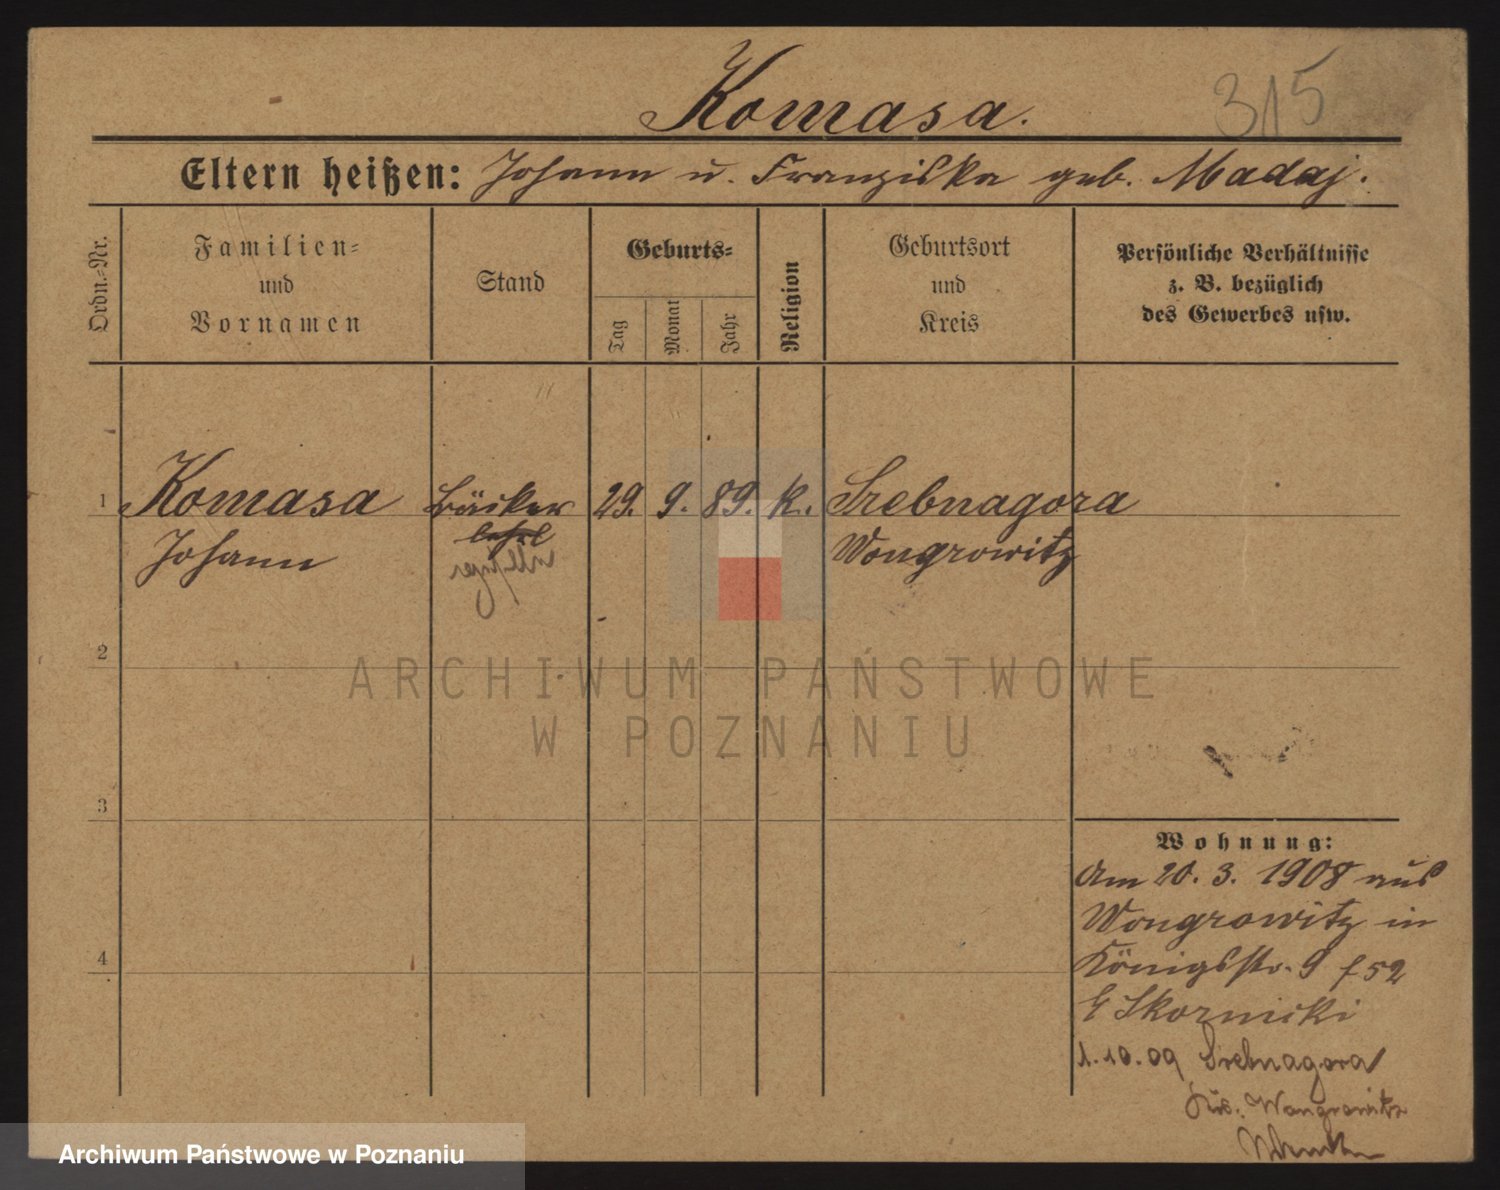 Komasa.
315
Eltern heißen: Johann u. Franziska geb. Madaj.
Ordn.-Nr.
Familien-
und
Vornamen
Stand
Geburts-
Tag
Monat
Jahr
Religion
Geburtsort
und
Kreis
Persönliche Verhältnisse
z. B. bezüglich
des Gewerbes usw.
1 Komasa Bäcker 29. 9. 89. k. Srebnagora
Johann lehrl Wongrowitz
2
ARCHIWUM PAŃSTWOWE
W POZNANIU
3
Wohnung:
Am 20. 3. 1908 aus
Wongrowitz in
4
Königsstr. 9 f 52
Skornicki
1.10.09 Srebnagora
Krs. Wongrowitz
Archiwum Państwowe w Poznaniu